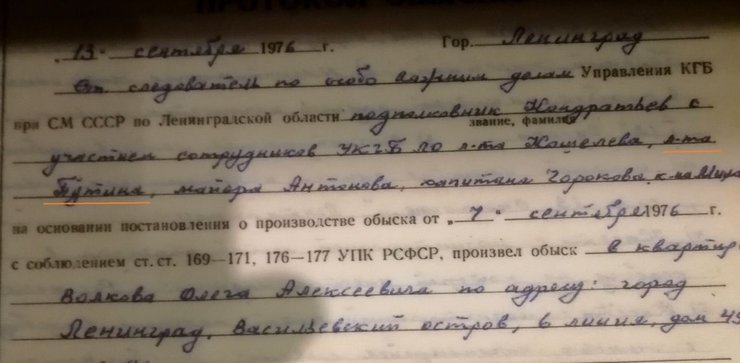 ПРОТОКОЛ ОБЫСКА
„ 13 " сентября 1976 г. Гор. Ленинград
Ст. следователь по особо важным делам Управления КГБ
при СМ СССР по Ленинградской области подполковник Кондратьев с
звание, фамилия
участием сотрудников УКГБ ЛО л-та Кошелева, л-та
Путина, майора Антонова, капитана Горокова, к-на
на основании постановления о производстве обыска от „ 7 " сентября 1976 г.
с соблюдением ст. ст. 169—171, 176—177 УПК РСФСР, произвел обыск в квартир
Волкова Олега Алексеевича по адресу: город
Ленинград, Васильевский остров, 6 линия, дом